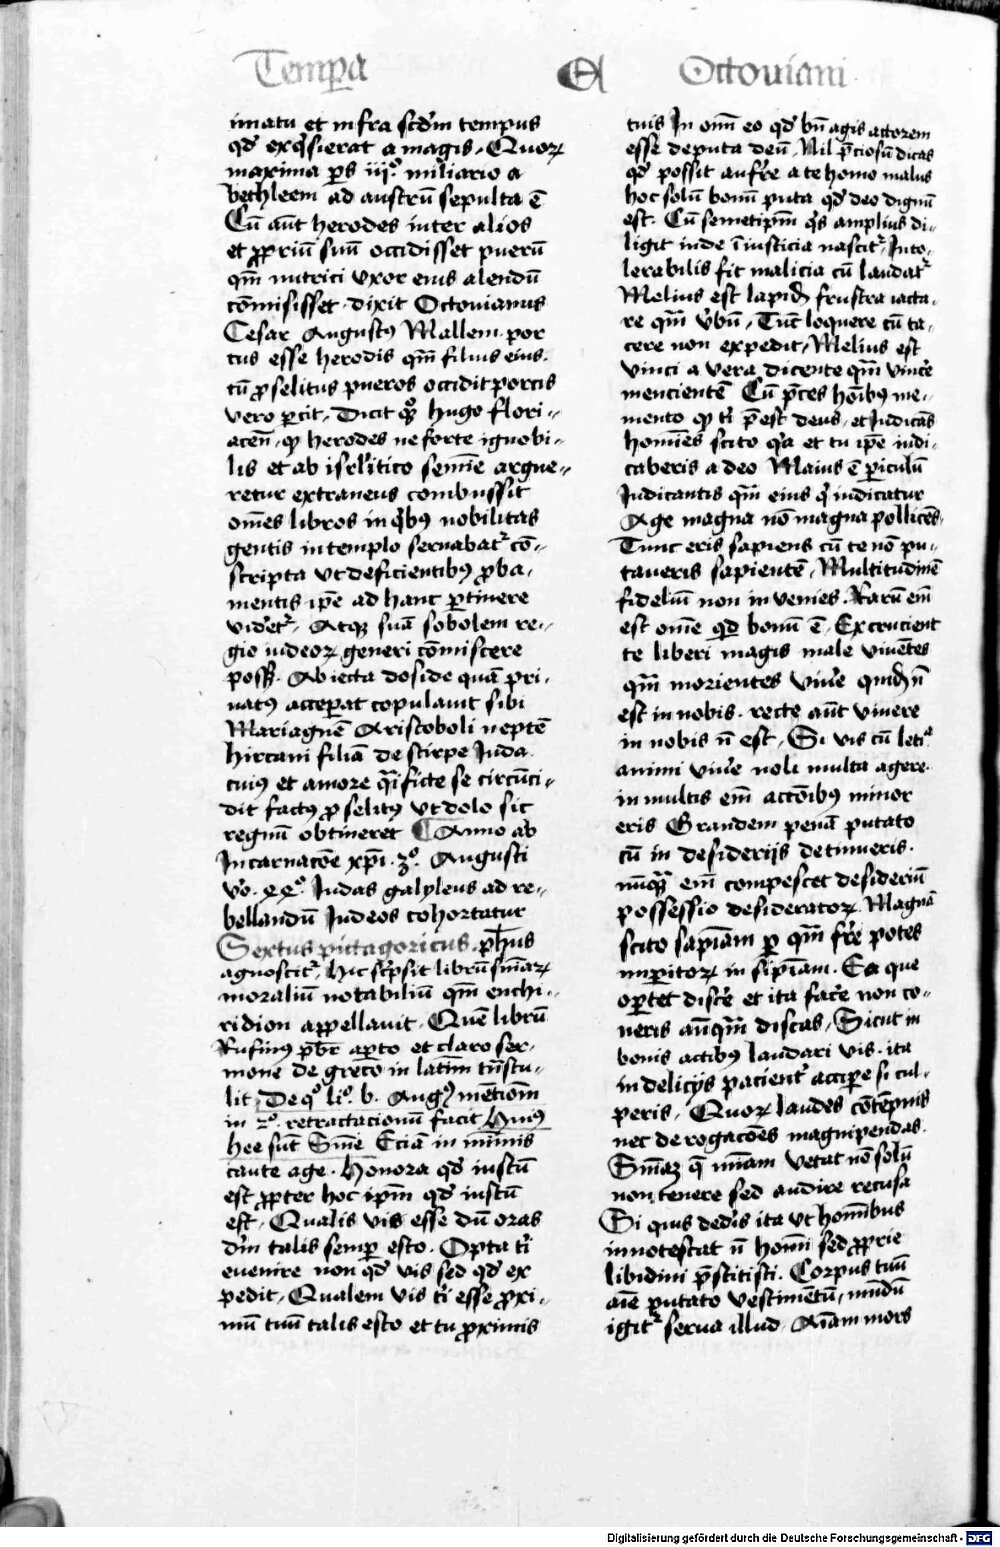 Tempora Octouiani
imatu et infra scdm tempus
qd exqsierat a magis. Quoꝝ
maxima ps iijº miliario a
bethleem ad austrū sepulta ē
Cū aūt herodes inter alios
et ꝓpriū suū occidisset puerū
qm̄ nutrici vxor eius alendū
cōmisisset. dixit Octouianus
Cesar Augustꝰ Mallem por
cus esse herodis qm̄ filius eius.
cū ꝓselitus pueros occidit porcis
vero ꝑcit. Dicit qꝫ hugo flori-
acen̄. ꝙ herodes ne forte ignobi-
lis et ab isrl'itico semīe argue-
retur extraneus combussit
om̄es libros in qbꝰ nobilitas
gentis in templo seruabat' cō-
scripta vt deficientibꝰ ꝓba-
mentis ip̄e ad hanc ꝑtinere
videt'. Atqꝫ suā sobolem re-
gio iudeoꝝ generi cōmiscere
poss;. Abiecta doside quā pri-
uatꝰ acceꝑat copulauit sibi
Mariagnē Aristoboli neptē
hircani filiā de stirpe Juda
cuiꝰ et amore ficte se circūci-
dit factꝰ ꝓselitꝰ vt dolo sic
regnū obtineret Anno ab
Incarnacōe xpī. Augusti
vº. Judas galyleus ad re-
bellandū Judeos cohortatur
Sextus pictagoricus. ph̄us
agnoscit'. hic sc'psit librū sm̄aꝝ
moraliū notabiliū qm̄ enchi-
ridion appellauit. Quē librū
Rufinꝰ p̄br aꝑto et claro ser-
mone de greco in latīm tn̄stu-
lit. De qº liº. b. Augꝰ mētiōm
in 2º. retractacionū facit huiꝰ
hee sūt Sm̄e Eciā in mīmis
caute age. Honora qd iustū
est ꝓpter hoc ip̄m qd iustū
est. Qualis vis esse dū oras
dm̄ talis semꝑ esto. Opta ti
euenire non qd vis sed qd ex
pedit. Qualem vis ti esse ꝓxi-
mū tuū talis esto et tu ꝓximis
tuis In om̄i eo qd bn̄ agis actorem
esse deputa deū. Nil p̄ciosū dicas
qd possit aufr̄e a te homo malus
hoc solū bonū puta qd deo dignū
est. Cū semetipm̄ qs amplius di-
ligit inde īiusticia nascit'. Into-
lerabilis fit malicia cū laudat'
Melius est lapidē frustra iacta-
re qm̄ vbū. Tūc loquere cū ta-
cere non expedit. Melius est
vinci a vera dicente qm̄ vincē
mencientē Cū p̄ces hōībꝰ me-
mento ꝙ ti p̄est deus. et Judicās
homīes scito qa et tu ip̄e iudi-
caberis a deo Maius ē ꝑiculū
Judicantis qm̄ eius q' iudicatur
Age magna nō magna pollicēs.
Tunc eris sapiens cū te nō pu-
taueris sapientē. Multitudinē
fideliū non inuenies. Rarū em̄
est om̄e qd bonū ē. Excrucient
te liberi magis male viuētes
qm̄ morientes viuē quidē n̄
est in nobis. recte aūt viuere
in nobis n̄ est. Si vis cū leti
animi viuē noli multa agere.
in multis em̄ actōibꝰ minor
eris Grandem penā putato
cū in desiderijs detinueris.
nūqꝫ em̄ compescet desideriū
possessio desideratoꝝ. Magnā
scito sapiam ꝑ qm̄ fr̄e potes
imꝑitoꝝ insipiam. Ea que
oꝑtet discē et ita facē non co-
neris aūqm̄ discas. Sicut in
bonis actibꝰ laudari vis. ita
in delicijs pacient' accipe si cul-
peris. Quoꝝ laudes cōtēpnis
nec derogacōes magnipendas.
Sm̄aꝫ q̄ mn̄am vetat nō solū
non tenere sed audire recusa
Si quis dedis ita vt homībus
innotescat n̄ homī sed ꝓprie
libidini p̄stitisti. Corpus tuū
aīe putato vestimētū, mūdū
igit' serua illud. Aīam mors
Digitalisierung gefördert durch die Deutsche Forschungsgemeinschaft - DFG